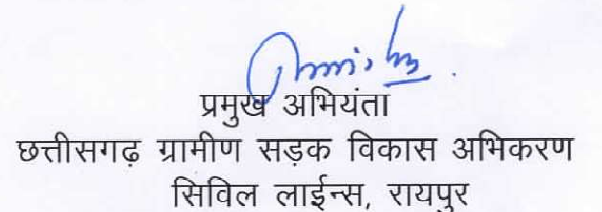 प्रमुख अभियंता
छत्तीसगढ़ ग्रामीण सड़क विकास अभिकरण
सिविल लाईन्स, रायपुर